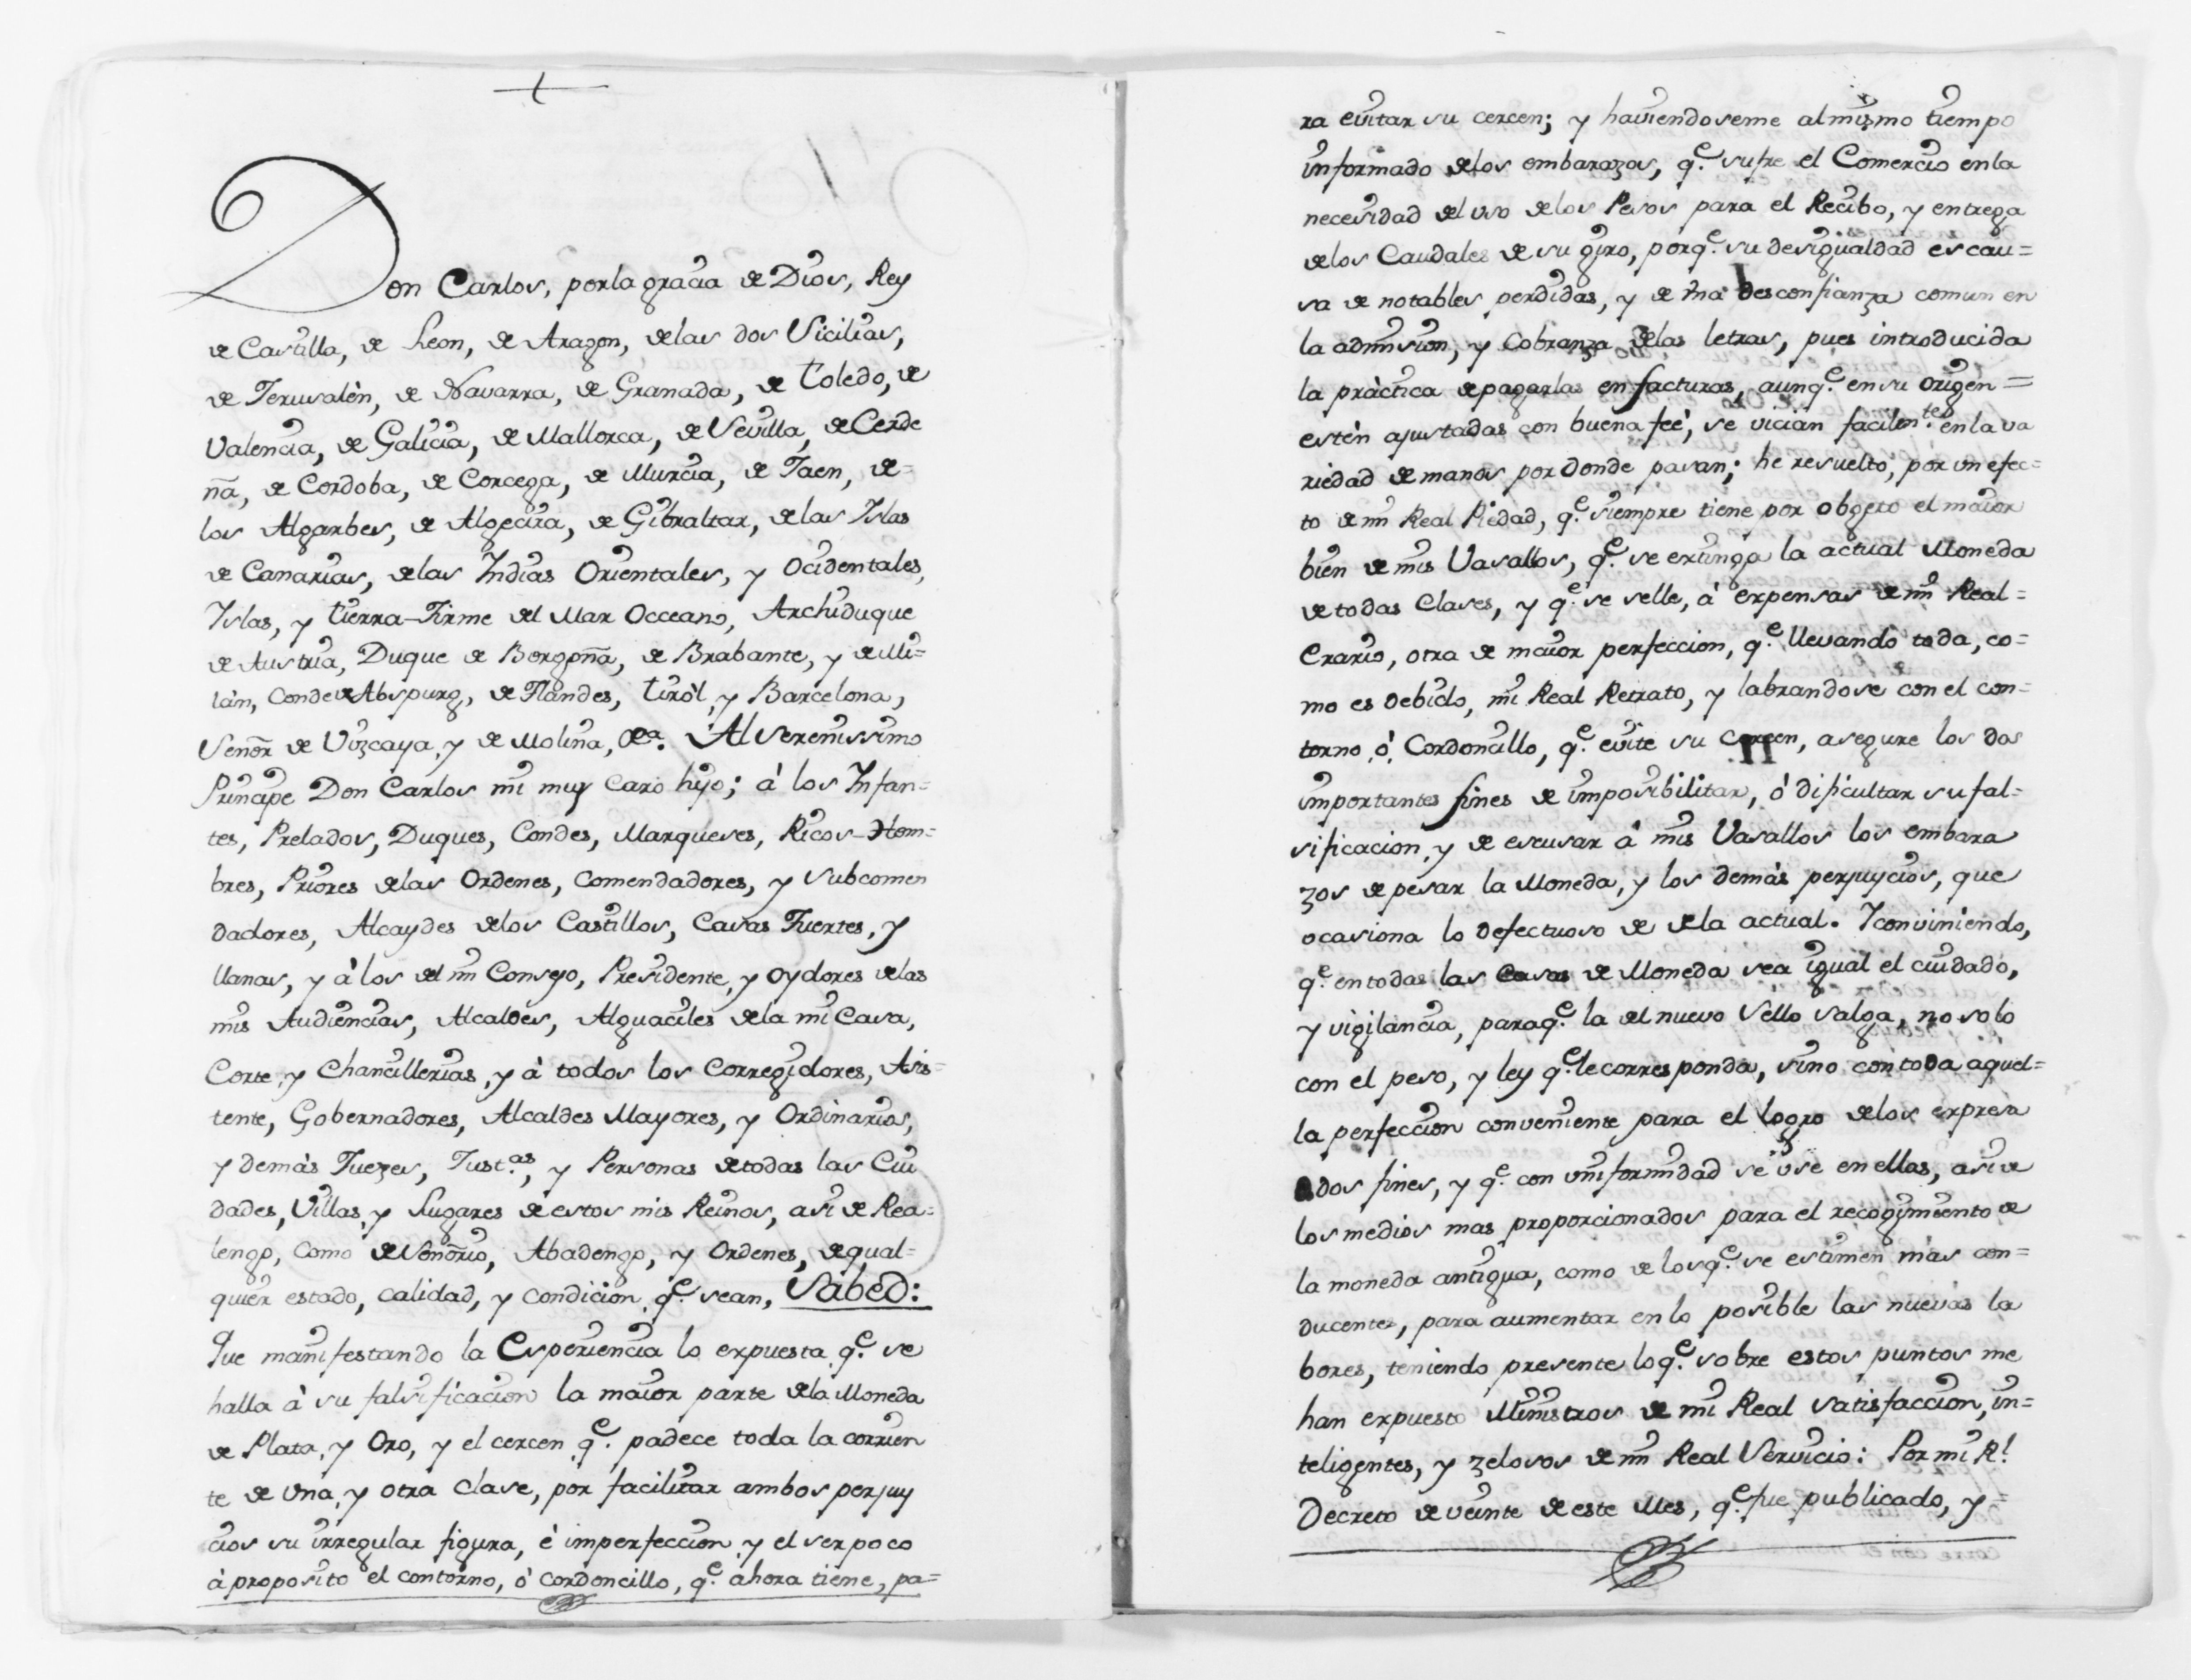 Don Carlos, por la gracia de Dios, Rey
de Castilla, de Leon, de Aragon, de las dos Sicilias,
de Jerusalèn, de Navarra, de Granada, de Toledo, de
Valencia, de Galicia, de Mallorca, de Sevilla, de Cerde
ña, de Cordoba, de Corcega, de Murcia, de Jaen, de=
los Algarbes, de Algecira, de Gibraltar, de las Yslas
de Canarias, de las Yndias Orientales, y Ocidentales,
Yslas, y tierra-Firme del Mar Occeano, Archiduque
de Austria, Duque de Borgoña, de Brabante, y de Mi=
làn, Conde de Abspurg, de Flandes, tiròl, y Barcelona,
Señor de Vizcaya, y de Molina, &a. Al Serenissimo
Principe Don Carlos mi muy caro hijo; à los Infan=
tes, Prelados, Duques, Condes, Marqueses, Ricos-Hom=
bres, Priores de las Ordenes, Comendadores, y Subcomen
dadores, Alcaydes de los Castillos, Casas Fuertes, y
llanas, y à los del mi Consejo, Presidente, y Oydores de las
mis Audiencias, Alcaldes, Alguaciles de la mi Casa,
Corte, y Chancillerias, y à todos los Corregidores, Asis=
tente, Gobernadores, Alcaldes Mayores, y Ordinarios,
y demàs Juezes, Just.as, y Personas de todas las Ciu
dades, Villas, y Lugares de estos mis Reinos, asi de Rea=
lengo, como de Señorio, Abadengo, y Ordenes, de qual=
quier estado, calidad, y condicion q.e sean, Sabed:
Que manifestando la Esperiencia lo expuesta q.e se
halla à su falsificacion la maior parte de la Moneda
de Plata, y Oro, y el cercen q.e padece toda la corrien
te de una, y otra clase, por facilitar ambos perjuy
cios su irregular figura, è imperfeccion, y el ser poco
à proposito el contorno, ò cordoncillo, q.e ahora tiene, pa=
ra evitar su cercen; y haviendoseme al mismo tiempo
informado de los embarazos, q.e sufre el Comercio en la
necesidad del uso de los Pesos para el Recibo, y entrega
de los Caudales de su giro, porq.e su desigualdad es cau=
sa de notables perdidas, y de una desconfianza comun en
la admision, y Cobranza de las letras, pues introducida
la pràctica de pagarlas en facturas, aunq.e en su origen=
estèn ajustadas con buena feè, se vician facilm.te en la va
riedad de manos por donde pasan; he resuelto, por un efec=
to de mi Real Piedad, q.e siempre tiene por obgeto el maior
bien de mis Vasallos, q.e se extinga la actual Moneda
de todas Clases, y q.e se selle, à expensas de mi Real=
Erario, otra de maior perfeccion, q.e llevando toda, co=
mo es debido, mi Real Retrato, y labrandose con el con=
torno, ò Cordoncillo, q.e evite su cercen, asegure los dos
importantes fines de imposibilitar, ò dificultar su fal=
sificacion, y de escusar à mis Vasallos los embara
zos de pesar la Moneda, y los demàs perjuycios, que
ocasiona lo defectuoso de de la actual. Y conviniendo,
q.e en todas las Casas de Moneda sea igual el cuidado,
y vigilancia, paraq.e la del nuevo Sello salga, no solo
con el peso, y ley q.e le corresponda, sino con toda aquel=
la perfeccion conveniente para el logro de los expresa
dos fines, y q.e con uniformidad se use en ellas, asi de
los medios mas proporcionados para el recogimiento de
la moneda antigua, como de los q.e se estimen màs con=
ducentes, para aumentar en lo posible las nuevas la
bores, teniendo presente lo q.e sobre estos puntos me
han expuesto Ministros de mi Real satisfaccion, in=
teligentes, y zelosos de mi Real Servicio: Por mi R.l
Decreto de veinte de este Mes, q.e fue publicado, y=